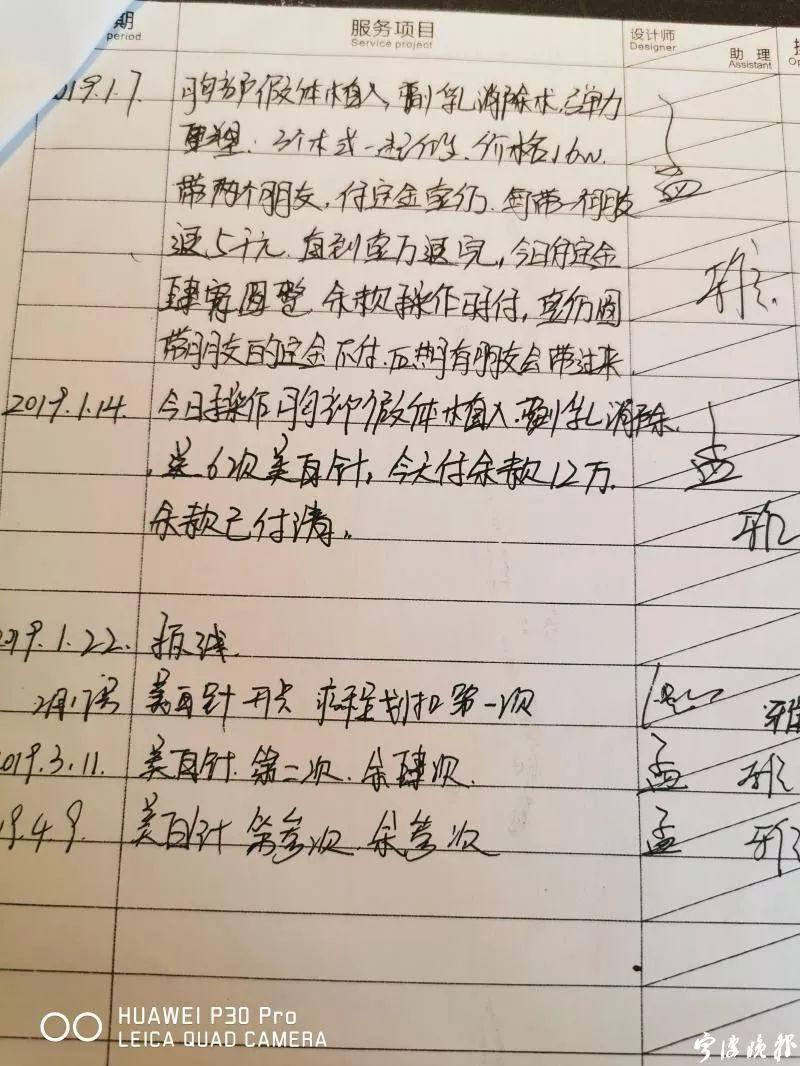 期 服务项目 设计师
period Service project Designer
助 理
Assistant
Op
019.1.7. 胸部假体植入,副乳消除术,弹力
重塑. 3个术式一起做. 价格16w.
带两个朋友,付定金壹仟.每带一个朋友
返5千元.直到壹万返完,今日付定金
肆万圆整 余款手术时付,壹仟圆
带朋友的定金不付.后期有朋友会带过来
孟
雅.
2019.1.14. 今日手术 胸部假体植入.副乳消除.
送6次美白针,今天付余款12万.
余款已付清.
孟
雅
019.1.22. 拆线.
2月17号 美白针 开 疗程划扣 第一次 雅
019.3.11. 美白针.第二次.余肆次. 孟 雅
19.4.9. 美白针 第叁次.余叁次 孟 雅
HUAWEI P30 Pro
LEICA QUAD CAMERA
宁波晚报